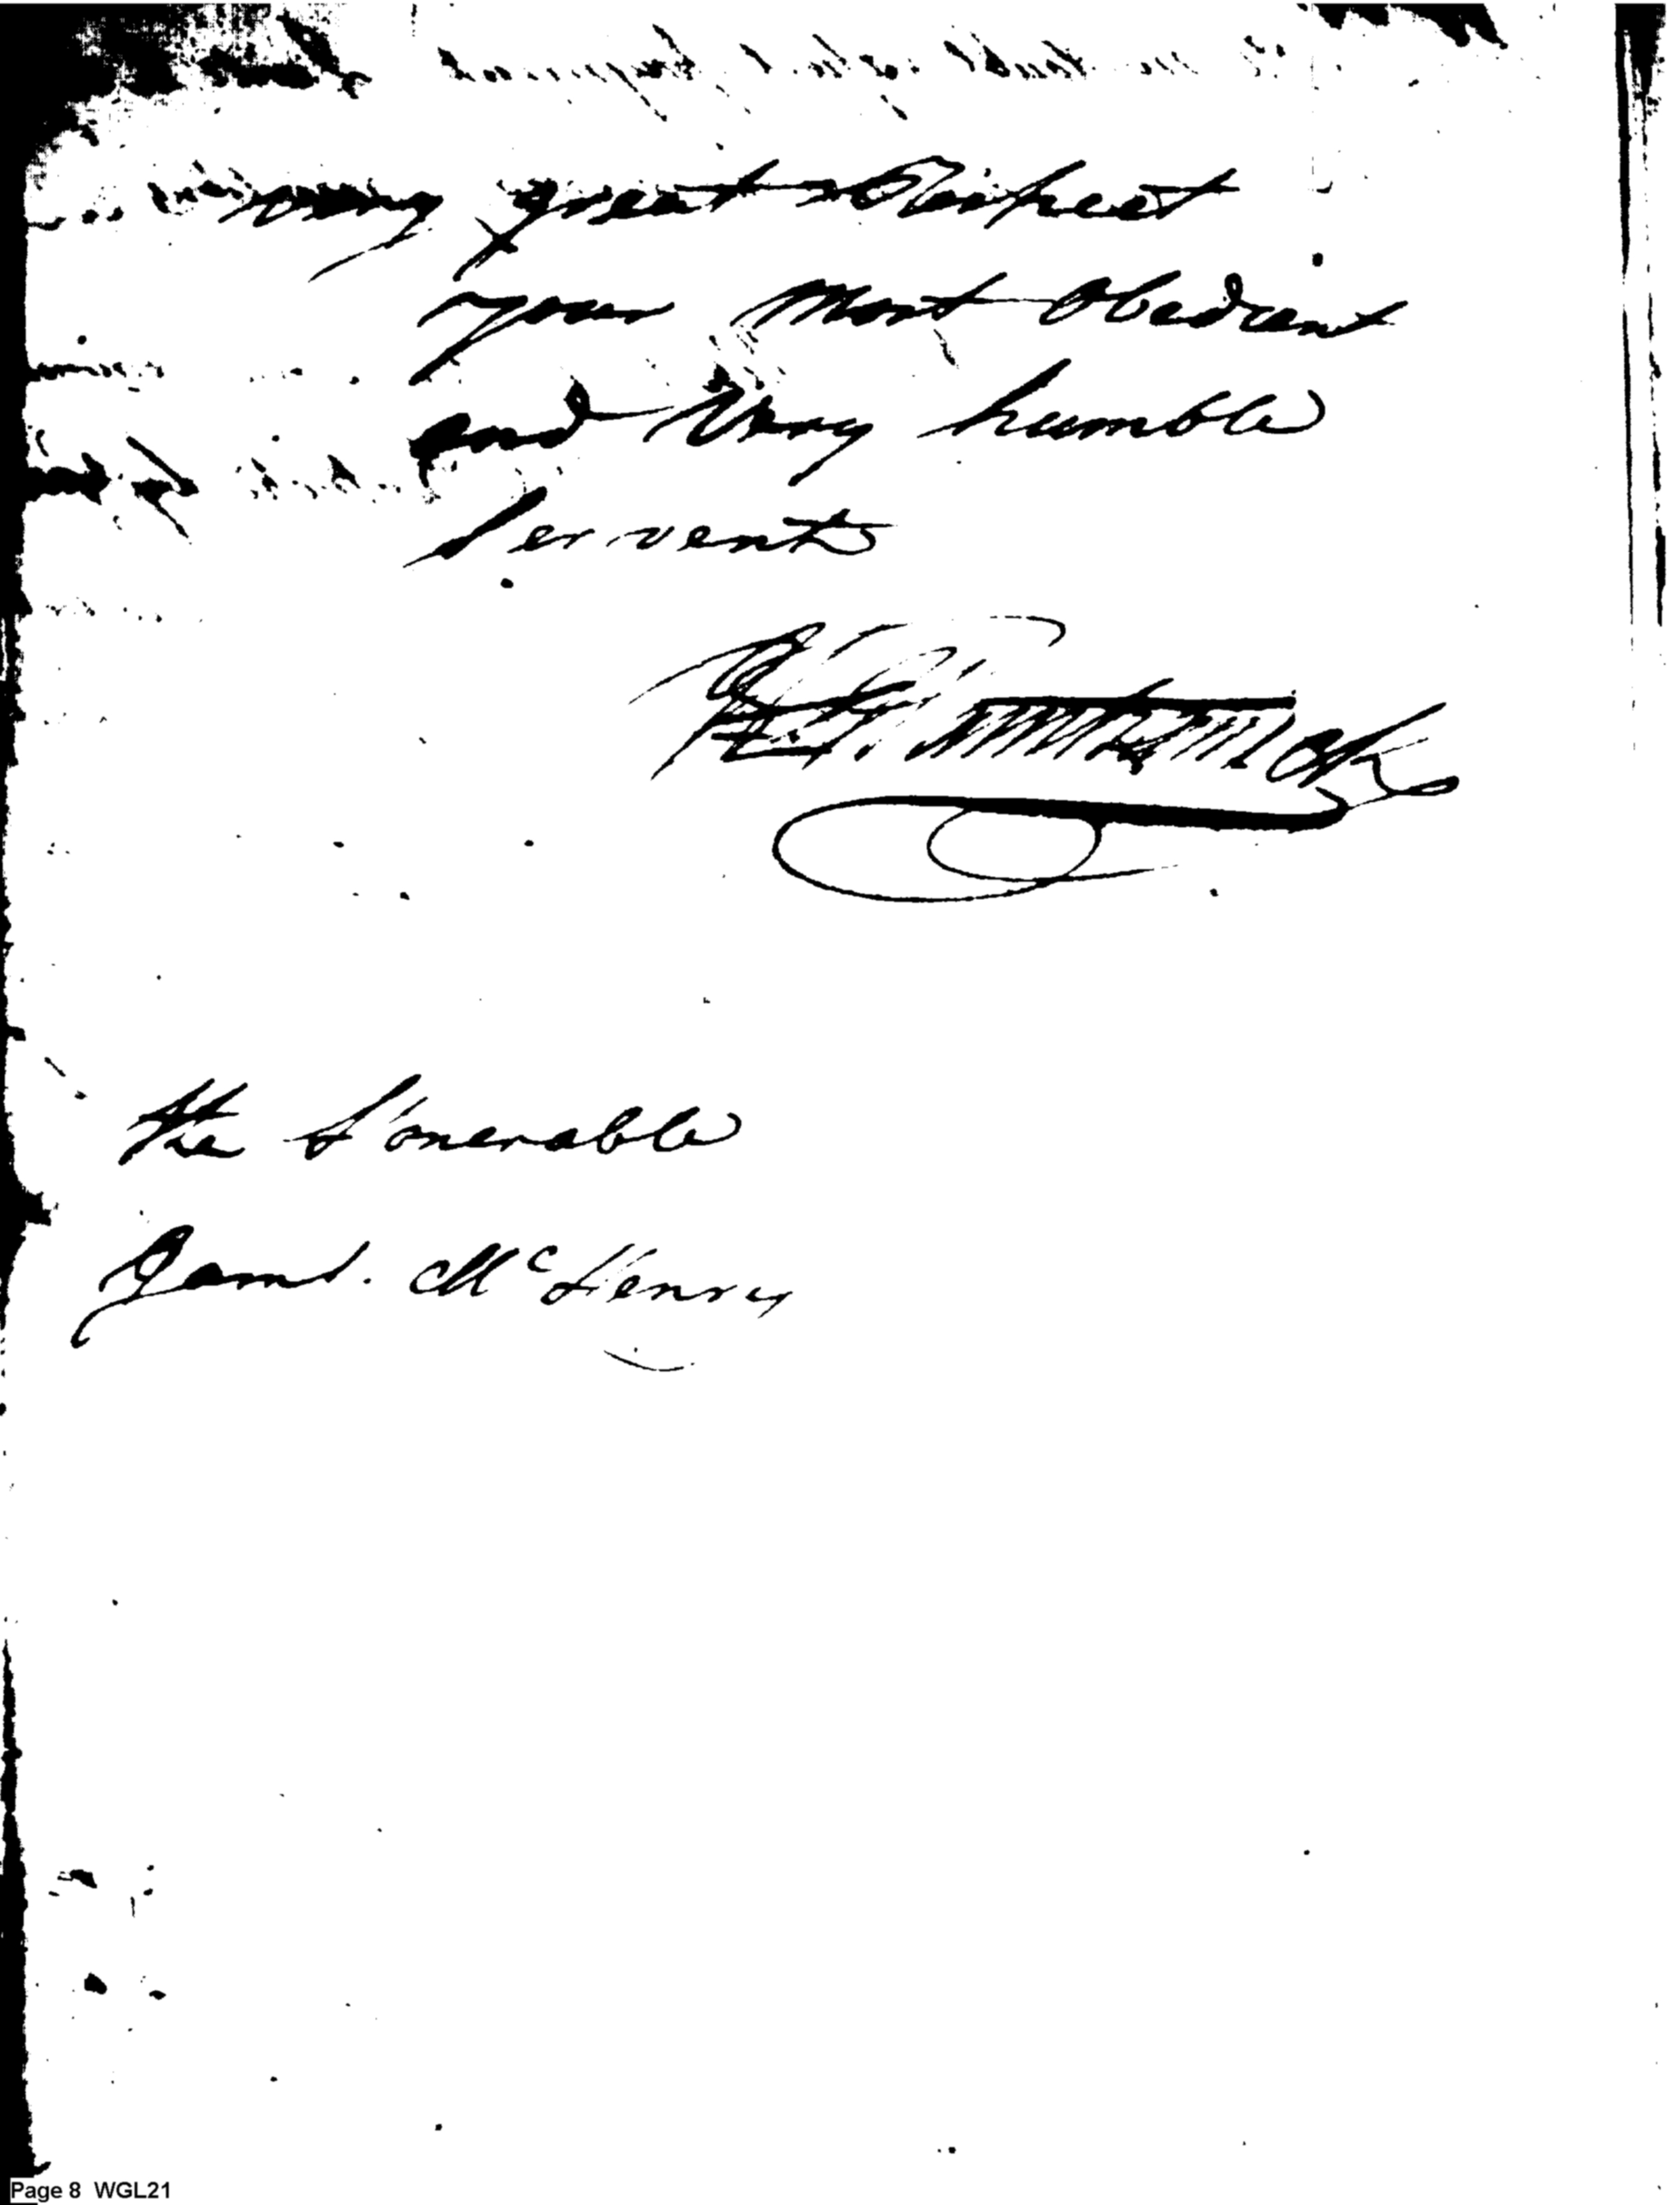 very great Respect
your Most Obedient
and Very humble
Servent
the Honorable
Jams. McHenry
Page 8 WGL21